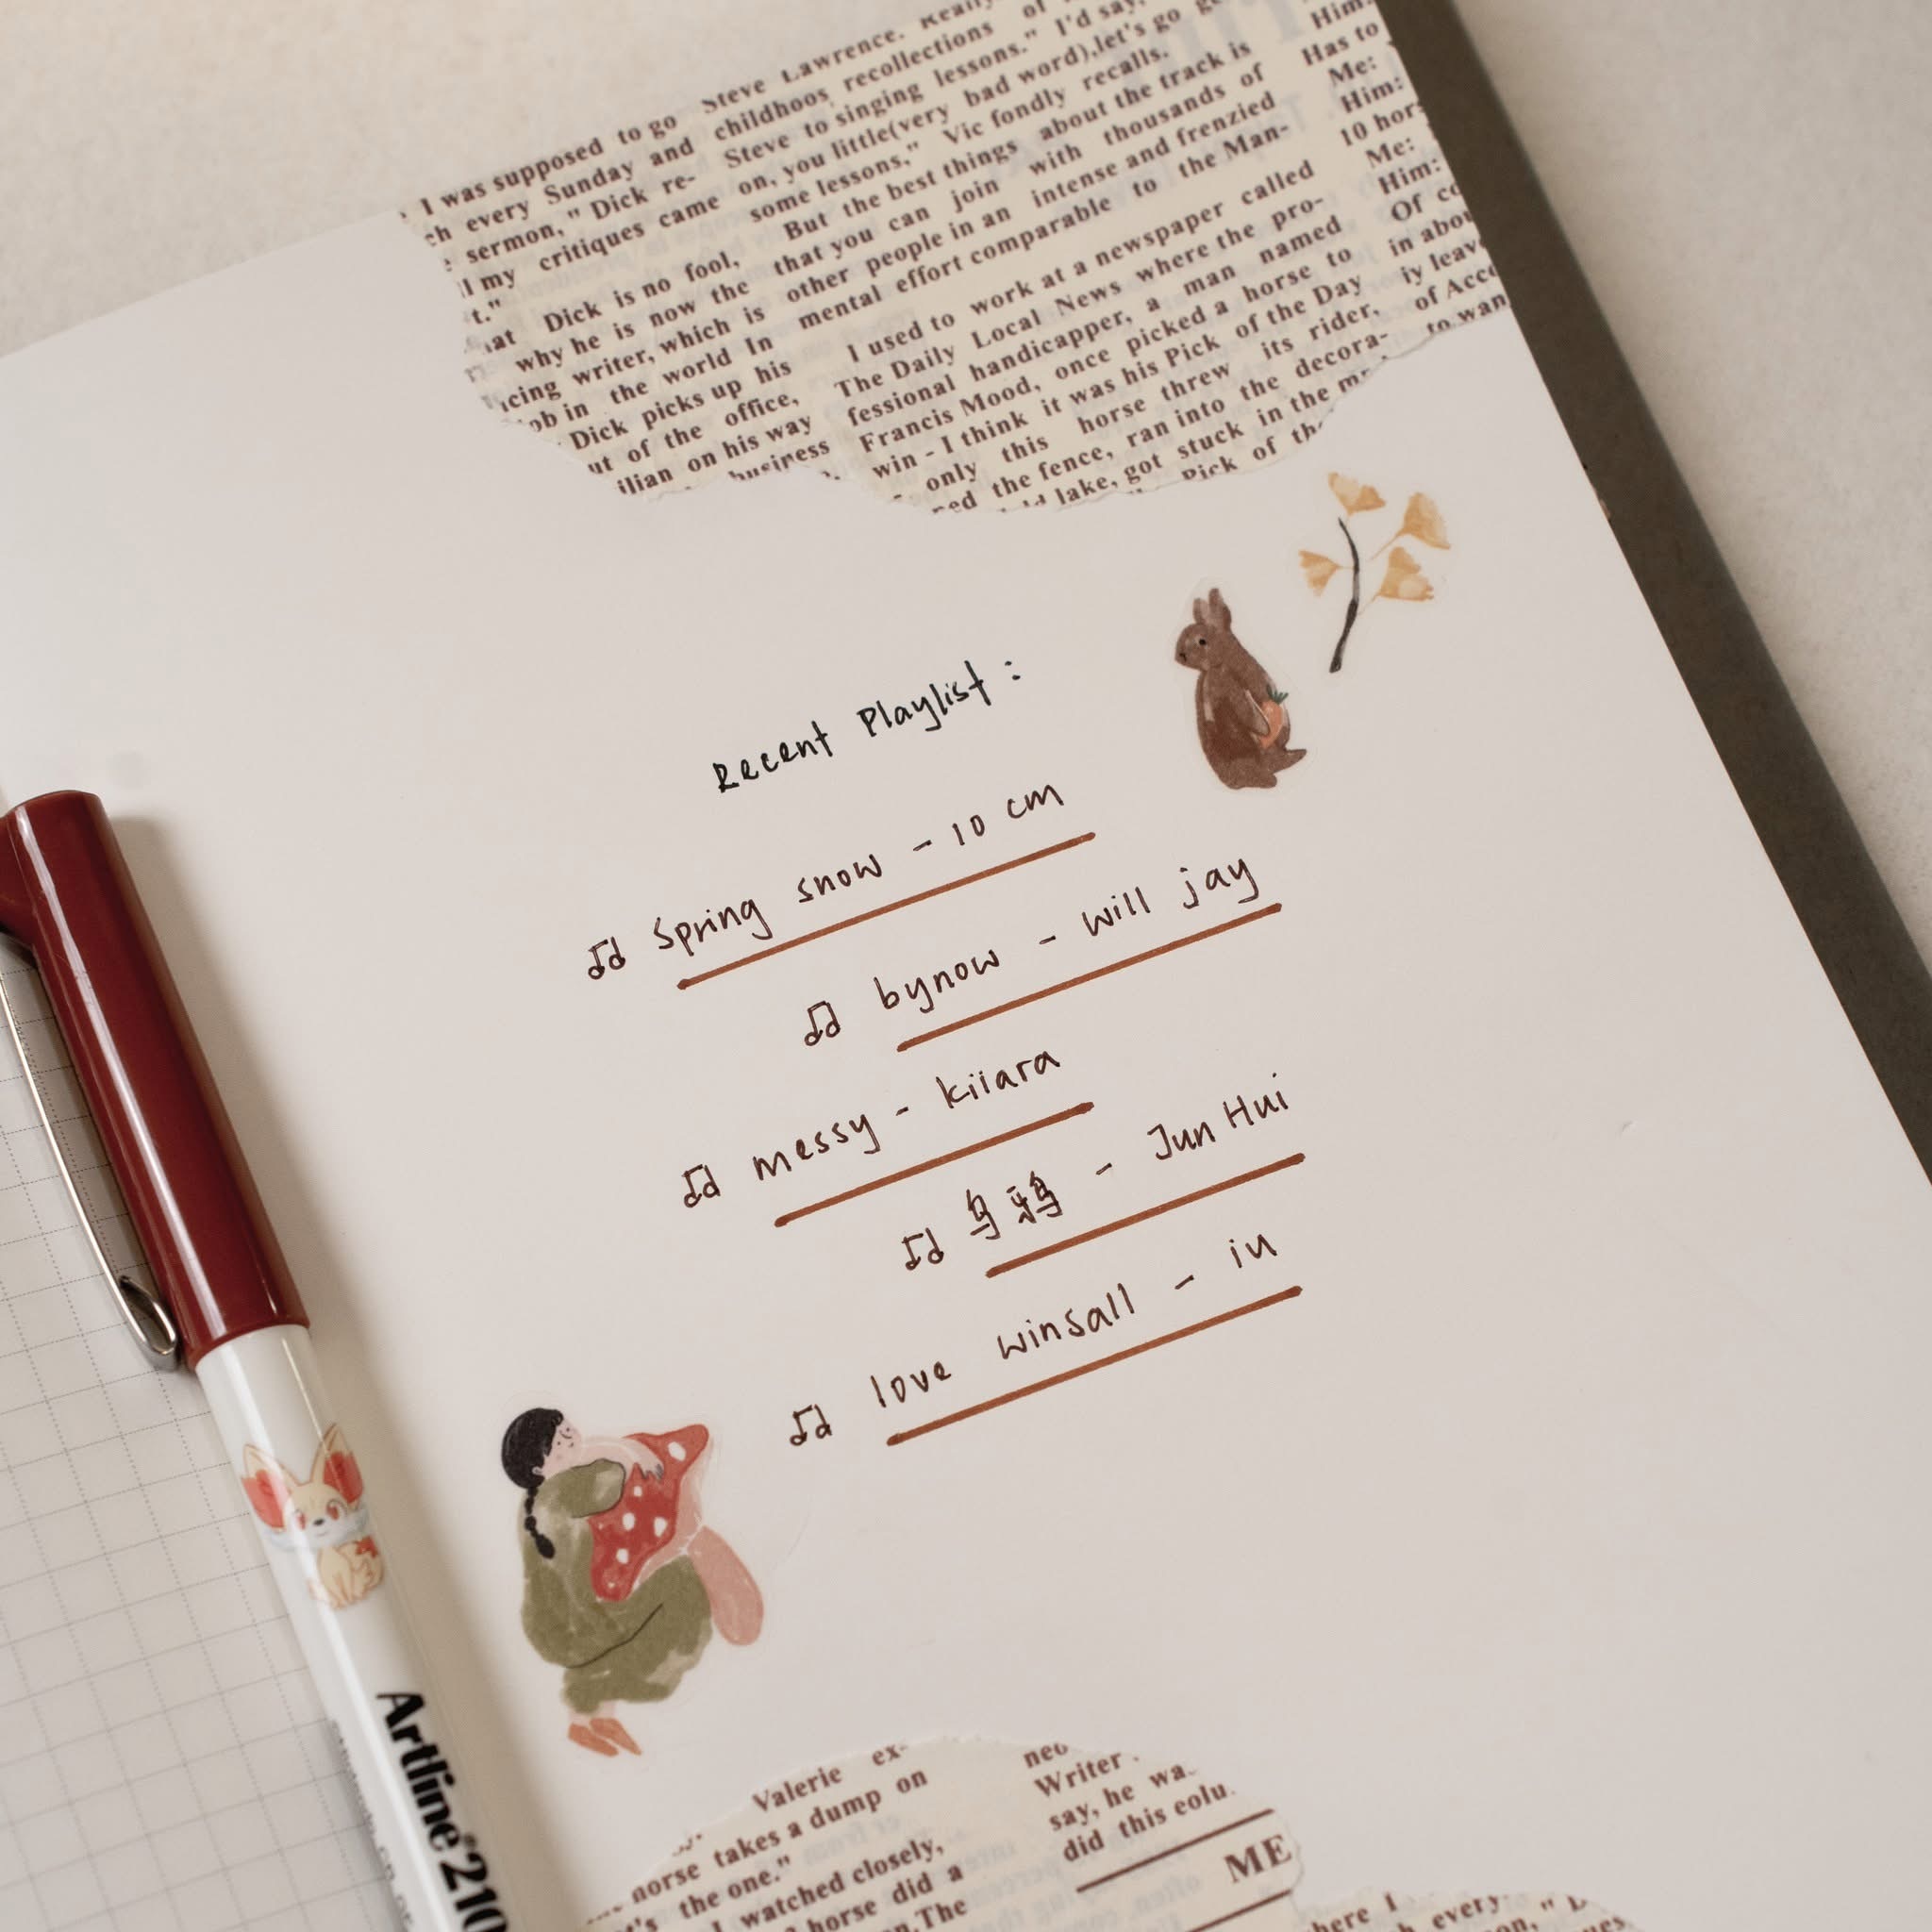 Steve Lawrence. Really
childhoos recollections of
Steve to singing lessons." I'd say,
on, you little(very bad word),let's go ge
some lessons," Vic fondly recalls.
But the best things about the track is
that you can join with thousands of
other people in an intense and frenzied
mental effort comparable to the Man-
I used to work at a newspaper called
The Daily Local News where the pro-
fessional handicapper, a man named
Francis Mood, once picked a horse to
win - I think it was his Pick of the Day
only this horse threw its rider,
ed the fence, ran into the decora-
ld lake, got stuck in the
Pick of the
I was supposed to go
ch every Sunday and
sermon," Dick re-
l my critiques came
t."
at Dick is no fool,
why he is now the
cing writer, which is
ob in the world In
Dick picks up his
ut of the office,
ilian on his way
business
Him:
Has to
Me:
Him:
10 hor
Me:
Him:
Of co
in abou
iy leav
of Acc
to wan
Recent Playlist :
♫ Spring snow - 10 cm
♫ bynow - will jay
♫ messy - kiiara
♫ 乌鸦 - Jun Hui
♫ love winsall - in
Artline 210
Valerie ex-
horse takes a dump on
t's the one."
I watched closely,
horse did a
The
neo
Writer
say, he wa
did this colu
ME
here I
every